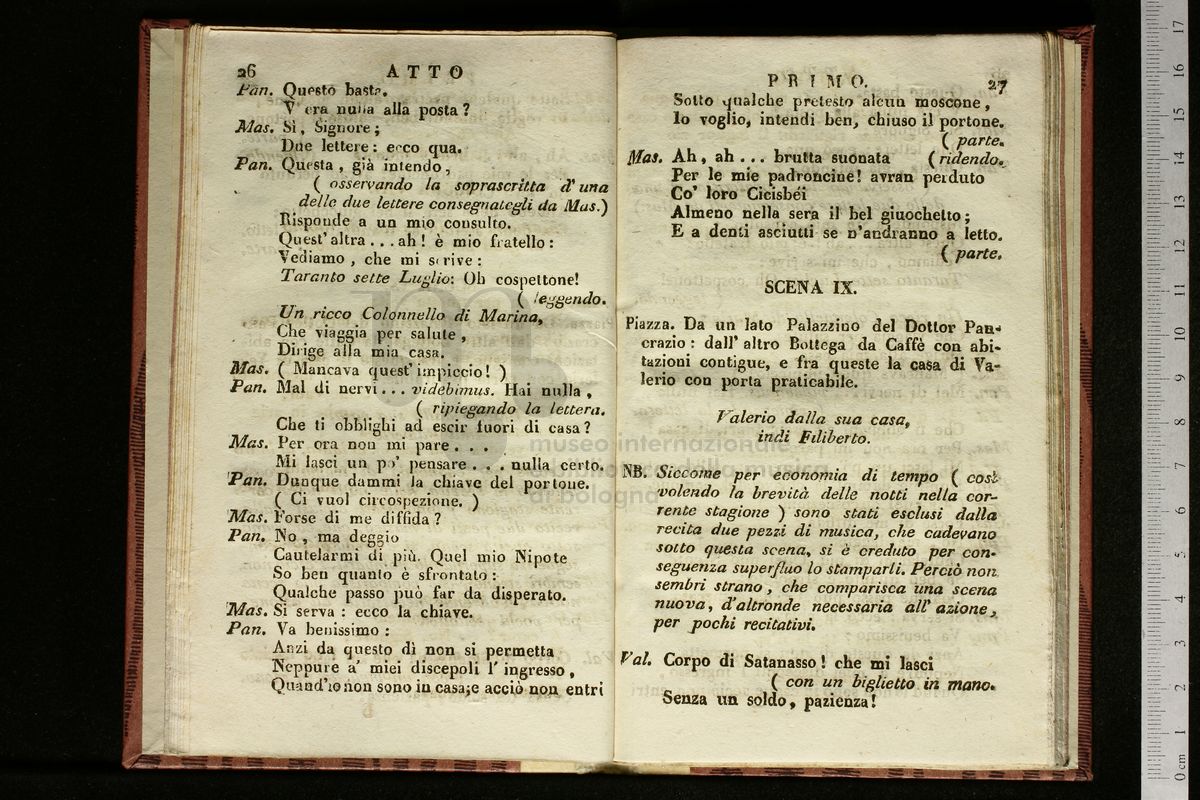 26 ATTO
Pan. Questo basta.
V' era nulla alla posta?
Mas. Si, Signore;
Due lettere: ecco qua.
Pan. Questa, già intendo,
( osservando la soprascritta d' una
delle due lettere consegnategli da Mas.)
Risponde a un mio consulto.
Quest' altra ... ah! è mio fratello:
Vediamo, che mi scrive:
Taranto sette Luglio: Oh cospettone!
( leggendo.
Un ricco Colonnello di Marina,
Che viaggia per salute,
Dirige alla mia casa.
Mas. ( Mancava quest' impiccio! )
Pan. Mal di nervi ... videbimus. Hai nulla,
( ripiegando la lettera.
Che ti obblighi ad escir fuori di casa?
Mas. Per ora non mi pare ...
Mi lasci un po' pensare ... nulla certo.
Pan. Dunque dammi la chiave del portone.
( Ci vuol circospezione. )
Mas. Forse di me diffida?
Pan. No, ma deggio
Cautelarmi di più. Quel mio Nipote
So ben quanto è sfrontato:
Qualche passo può far da disperato.
Mas. Si serva: ecco la chiave.
Pan. Va benissimo:
Anzi da questo dì non si permetta
Neppure a' miei discepoli l' ingresso,
Quand'io non sono in casa; e acciò non entri
PRIMO. 27
Sotto qualche pretesto alcun moscone,
Io voglio, intendi ben, chiuso il portone.
( parte.
Mas. Ah, ah ... brutta suonata ( ridendo.
Per le mie padroncine! avran perduto
Co' loro Cicisbéi
Almeno nella sera il bel giuochetto;
E a denti asciutti se n'andranno a letto.
( parte.
SCENA IX.
Piazza. Da un lato Palazzino del Dottor Pan-
crazio: dall' altro Bottega da Caffè con abi-
tazioni contigue, e fra queste la casa di Va-
lerio con porta praticabile.
Valerio dalla sua casa,
indi Filiberto.
NB. Siccome per economia di tempo ( così
volendo la brevità delle notti nella cor-
rente stagione ) sono stati esclusi dalla
recita due pezzi di musica, che cadevano
sotto questa scena, si è creduto per con-
seguenza superfluo lo stamparli. Perciò non
sembri strano, che comparisca una scena
nuova, d'altronde necessaria all' azione,
per pochi recitativi.
Val. Corpo di Satanasso! che mi lasci
( con un biglietto in mano.
Senza un soldo, pazienza!
museo internazionale
di bologna
0 cm 1 2 3 4 5 6 7 8 9 10 11 12 13 14 15 16 17